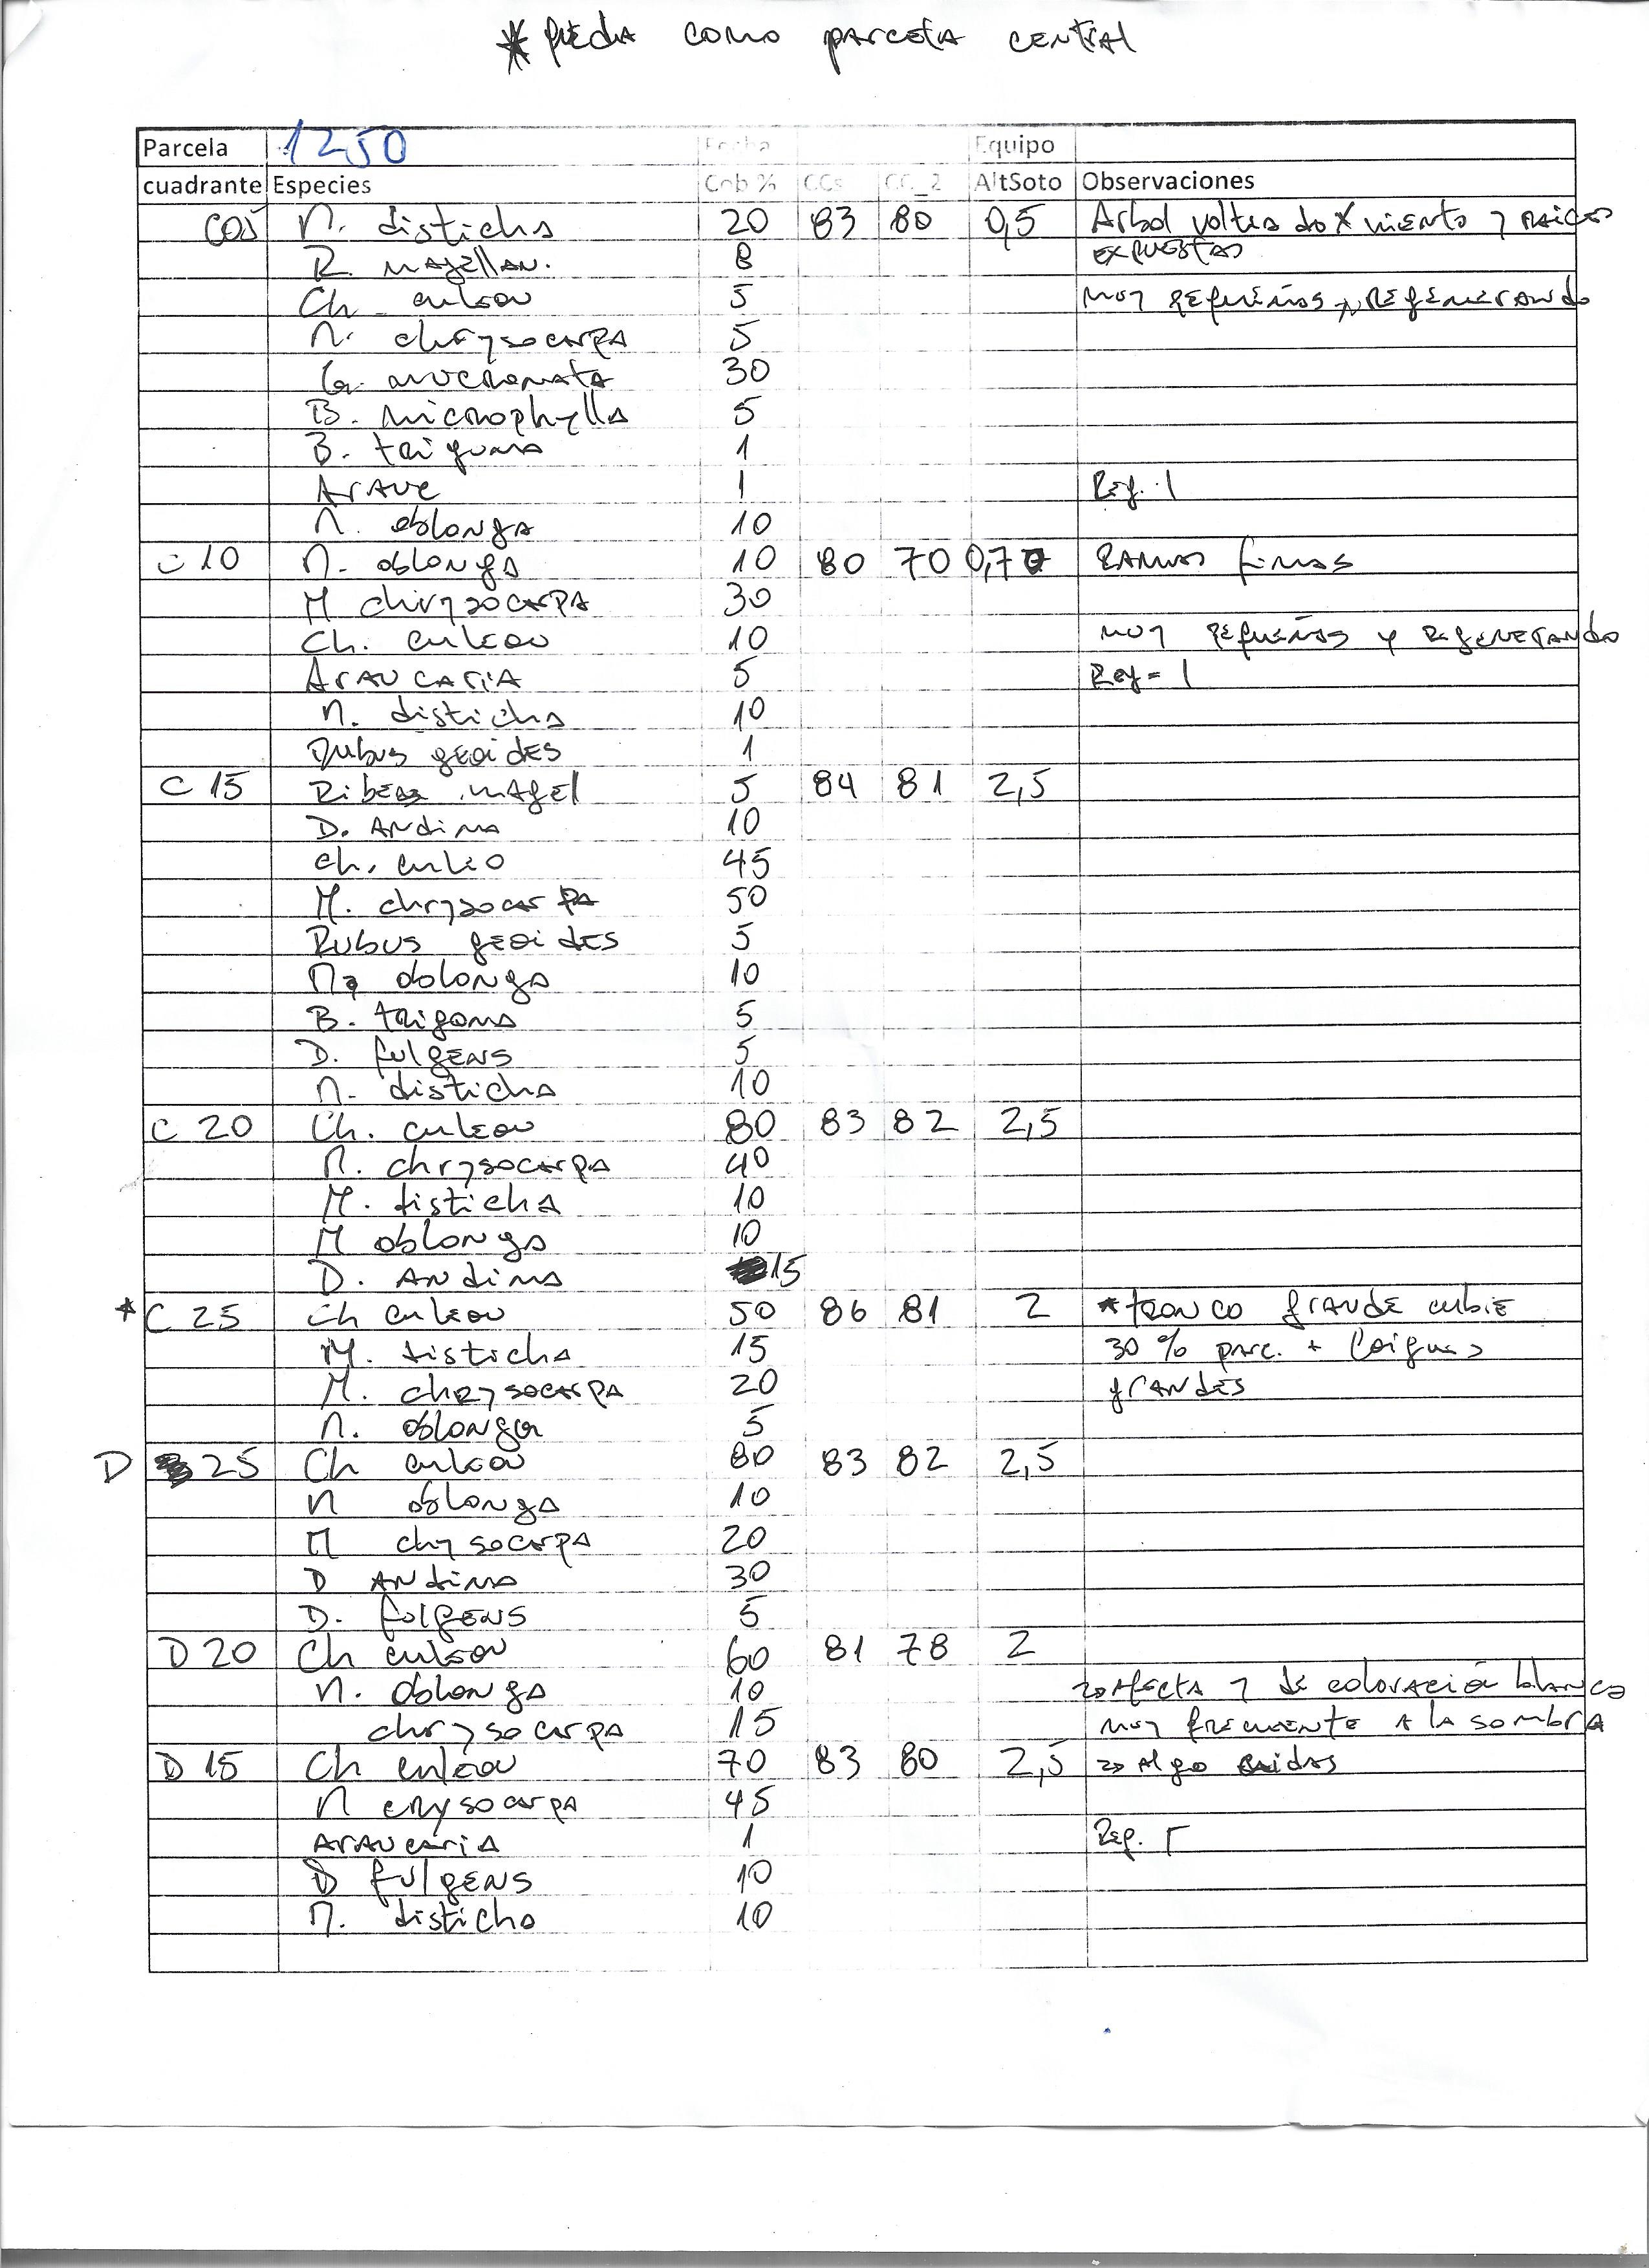 * queda como parcela central
Parcela 1250 Fecha Equipo
cuadrante Especies Cob % CCs CC_2 AltSoto Observaciones
C05 M. disticha 20 83 80 0,5 Arbol volteado x viento y raices
R. magellan. 8 expuestas
Ch culeou 5 muy pequeños y regenerando
M. chrysocarpa 5
G. mucronata 30
B. microphylla 5
B. trigona 1
Arauc 1 Reg. 1
M. oblonga 10
C 10 M. oblonga 10 80 70 0,70 Ramas finas
M chrysocarpa 30
Ch. culeou 10 muy pequeños y regenerando
Araucaria 5 Reg = 1
M. disticha 10
Rubus geoides 1
C 15 Ribes magel 5 84 81 2,5
D. Andina 10
Ch. culeo 45
M. chrysocarpa 50
Rubus geoides 5
M. oblonga 10
B. trigona 5
D. fulgens 5
M. disticha 10
C 20 Ch. culeou 80 83 82 2,5
M. chrysocarpa 40
M. disticha 10
M oblonga 10
D. Andina 15
* C 25 Ch culeou 50 86 81 2 * tronco grande cubre
M. disticha 15 30 % parc. + Coigues
M. chrysocarpa 20 grandes
M. oblonga 5
D 25 Ch culeou 80 83 82 2,5
M oblonga 10
M chrysocarpa 20
D Andina 30
D. fulgens 5
D 20 Ch culeou 60 81 78 2
M. oblonga 10 y de coloración blanca
chrysocarpa 15 muy frecuente a la sombra
D 15 Ch culeou 70 83 80 2,5 Algo caidas
M crysocarpa 45
Araucaria 1 Reg.
D fulgens 10
M. disticha 10